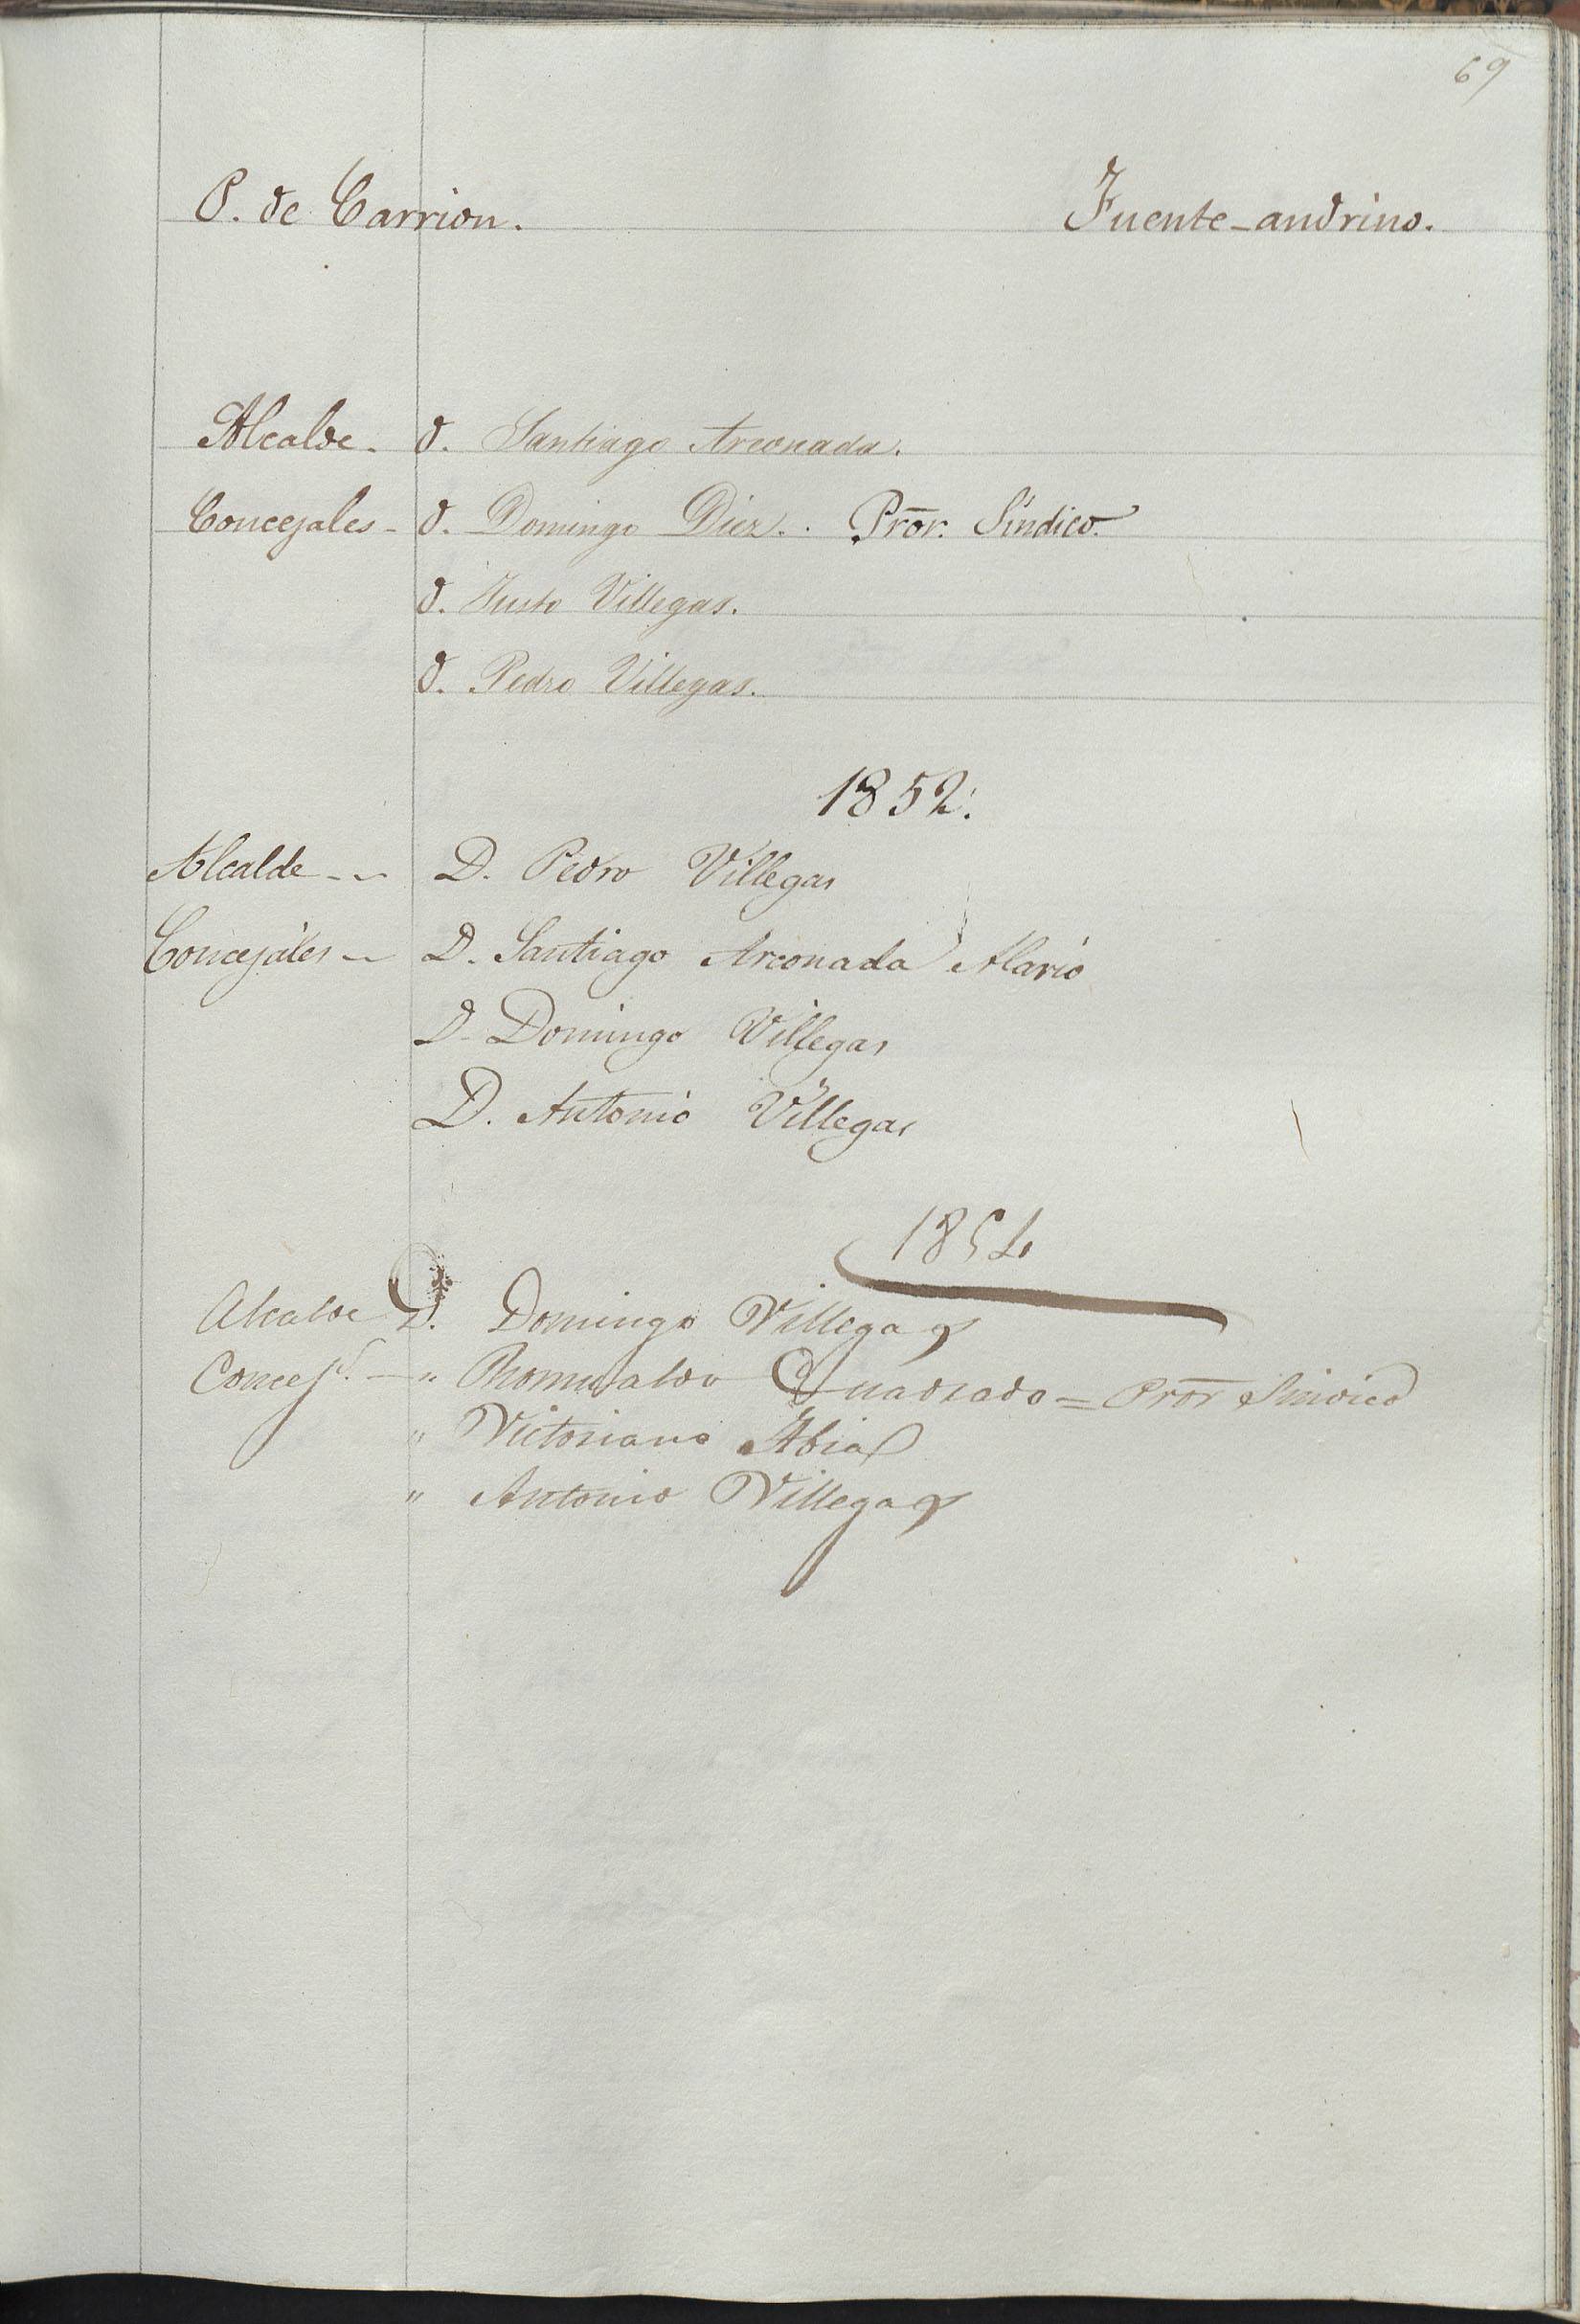 69
P. de Carrion. Fuente-andrino.
Alcalde. D. Santiago Arconada.
Concejales - D. Domingo Diez. . Pror. Síndico.
D. Justo Villegas.
D. Pedro Villegas.
1852.
Alcalde - - D. Pedro Villegas
Concejales - - D. Santiago Arconada Alario
D. Domingo Villegas
D. Antonio Villegas
1854
Alcalde D. Domingo Villegas
Concejs. - " Romualdo Quadrado = Pror Sindico
" Victoriano Abia
" Antonio Villegas